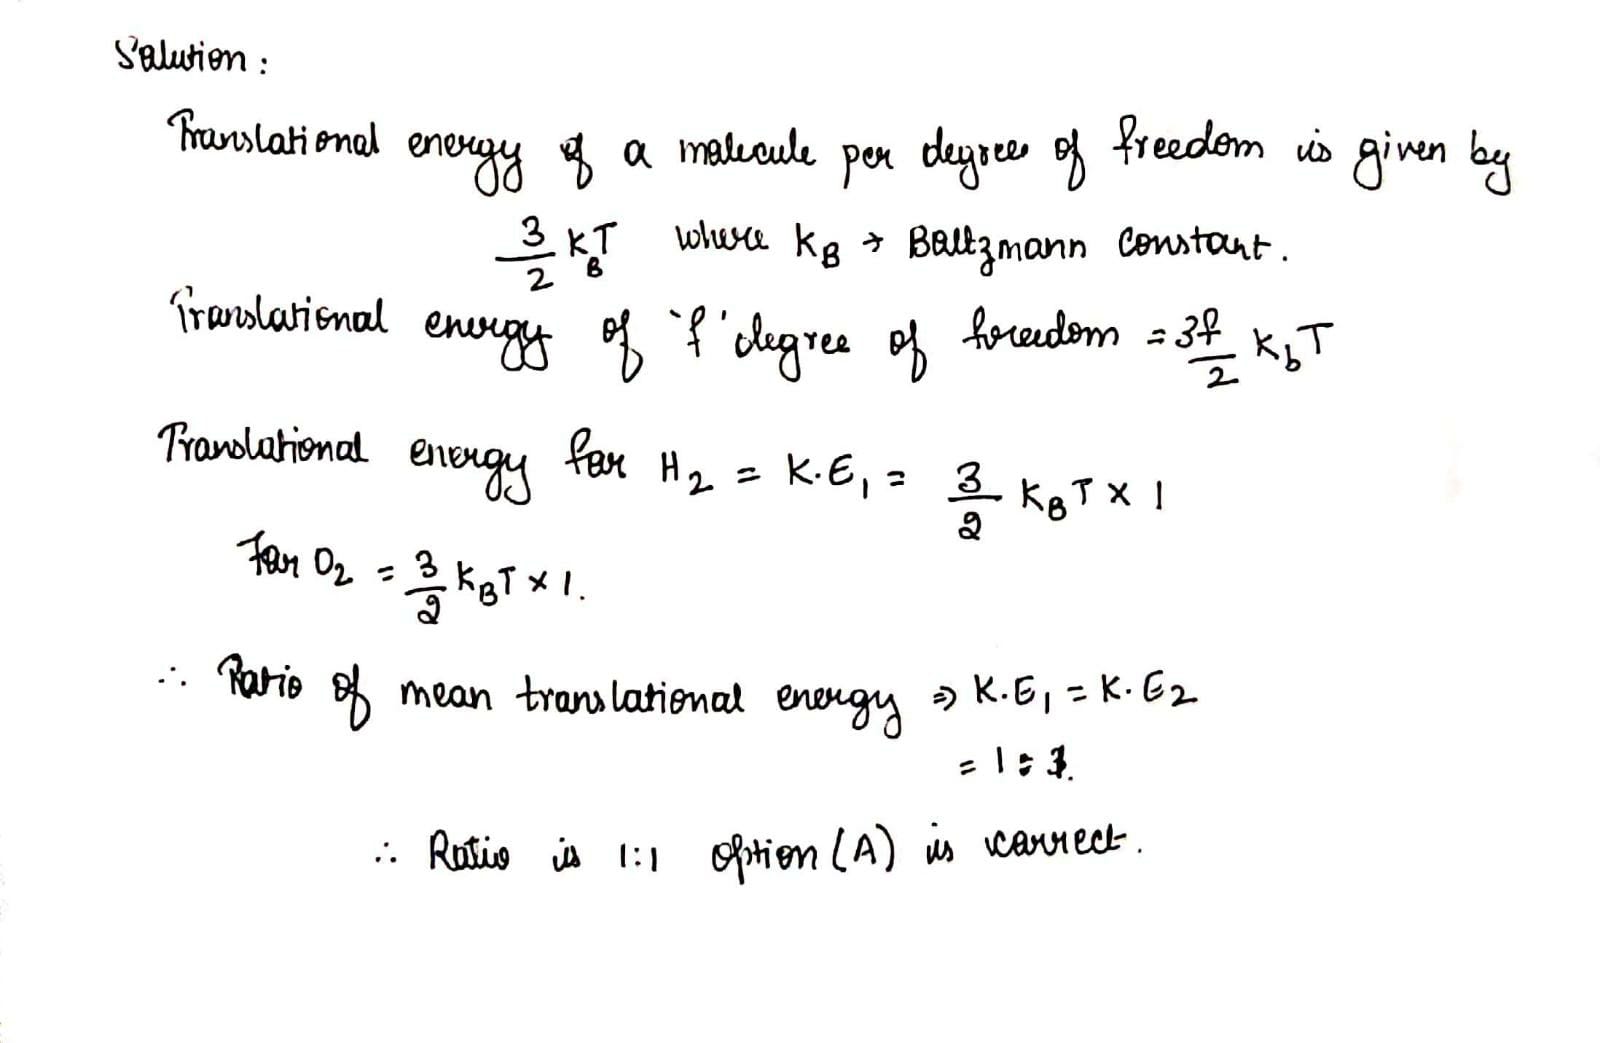 Solution :
Translational energy of a molecule per degree of freedom is given by
3/2 K_B T where K_B → Boltzmann Constant.
Translational energy of `f' degree of freedom = 3f/2 K_b T
Translational energy for H_2 = K.E_1 = 3/2 K_B T × 1
For O_2 = 3/2 K_B T × 1.
∴ Ratio of mean translational energy ⇒ K.E_1 = K.E_2
= 1 :
∴ Ratio is 1:1 option (A) is correct.